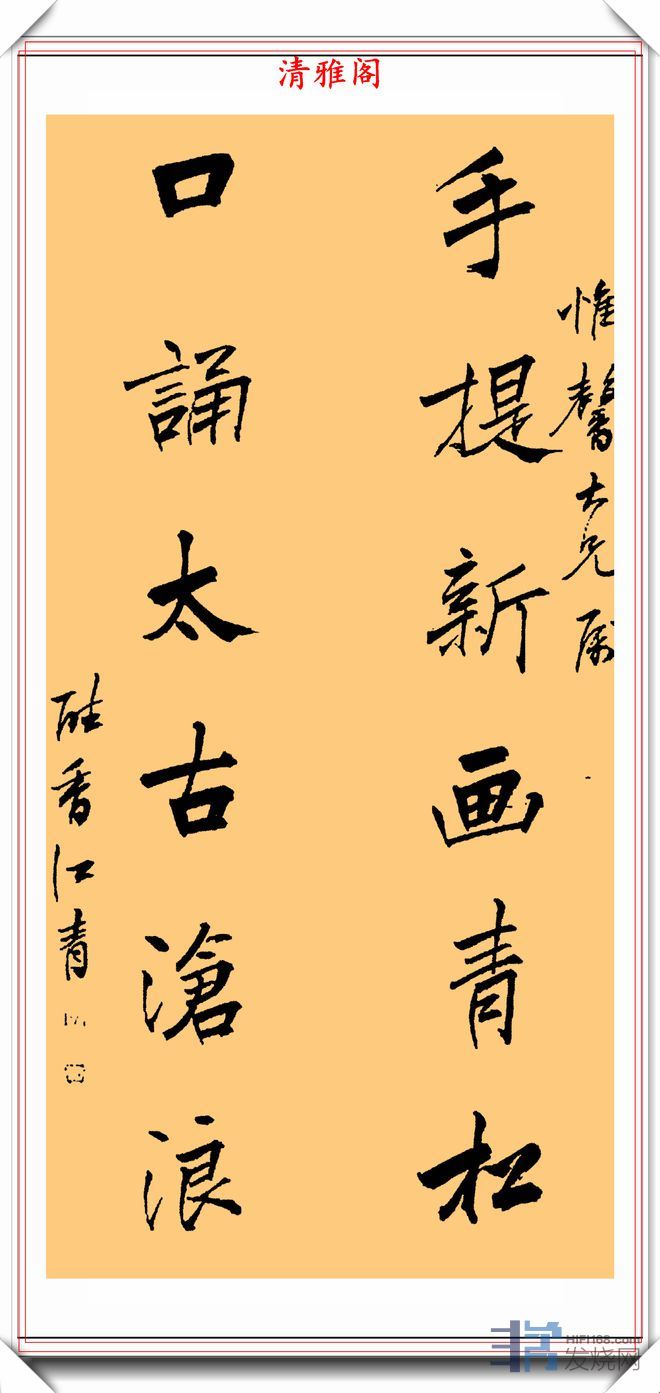 清雅阁
惟馨大兄属
手提新画青松
口誦太古滄浪
香江青
HIFI168.com
发烧网